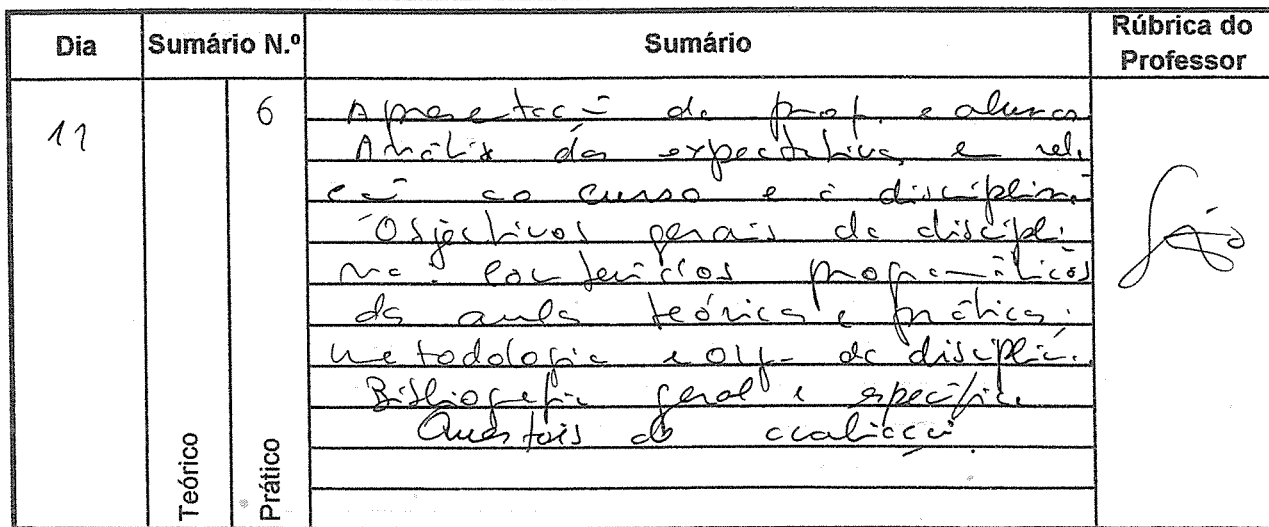 Dia Sumário N.º Sumário Rúbrica do Professor
11 6
Apresentação do prof. e alunos
Análise das expectativas em rela
ção ao curso e à disciplina
Objectivos gerais da discipli
na. Conteúdos programáticos
da aula teórica e prática.
Metodologia e org. da disciplina.
Bibliografia geral e específica
Questões de avaliação.
Teórico
Prático